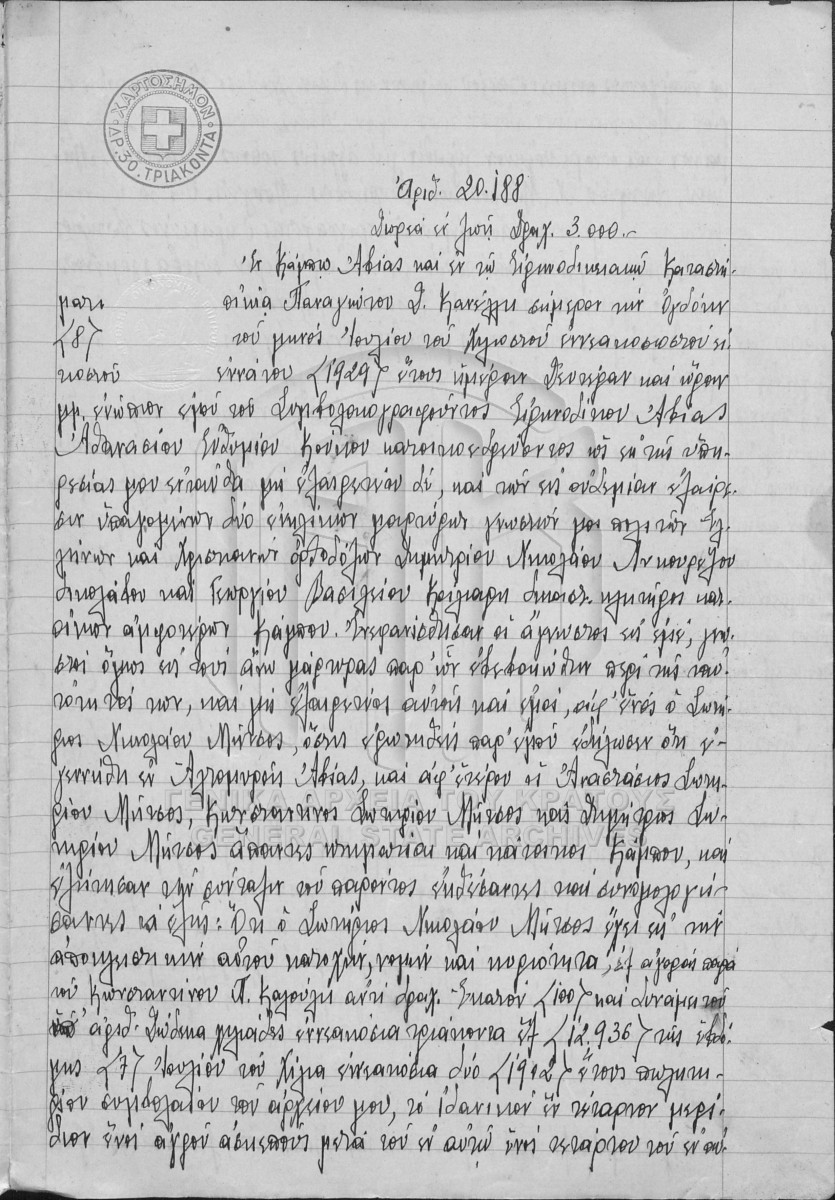 ΧΑΡΤΟΣΗΜΟΝ
ΔΡ. 30. ΤΡΙΑΚΟΝΤΑ
Ἀριθ. 20.188
Δωρεά εν ζωῇ Δραχ. 3.000.-
Ἐν Κάμπῳ Ἀβίας καί εν τῷ Εἰρηνοδικειακῷ Καταστή-
ματι οἰκίᾳ Παναγιώτου Δ. Κανέλλη σήμερον τήν Ὀγδόην
(8) τοῦ μηνός Ἰουλίου τοῦ Χιλιοστοῦ εννεακοσιοστοῦ εἰ-
κοστοῦ εννάτου (1929) ἔτους ἡμέραν Δευτέραν καί ὥραν
μμ, ενώπιον εμοῦ τοῦ Συμβολαιογραφοῦντος Εἰρηνοδίκου Ἀβίας
Ἀθανασίου Εὐθυμίου κατοικοεδρεύοντος ὡς εκ τῆς ὑπη-
ρεσίας μου ενταῦθα μή εξαιρετέου δέ, καί τῶν εἰς οὐδεμίαν εξαίρε-
σιν ὑπαγομένων δύο ενηλίκων μαρτύρων γνωστῶν μοι πολιτῶν Ἑλ-
λήνων καί Χριστιανῶν ὀρθοδόξων Δημητρίου Νικολάου
καί Γεωργίου Βασιλείου δικαστ. κλητῆρος κατ-
οίκων αμφοτέρων Κάμπου. Ενεφανίσθησαν οἱ ἄγνωστοι εἰς εμέ, γνω-
στοί ὅμως εἰς τούς ἄνω μάρτυρας παρ' ὧν εβεβαιώθην περί τῆς ταὐ-
τότητός των, καί μή εξαιρετέοι αὐτοῖς καί εμοί, αφ' ἑνός ὁ Σωτή-
ριος Νικολάου Μῆτσος, ὅστις ερωτηθείς παρ' εμοῦ εδήλωσεν ὅτι ε-
γεννήθη εν Ἀβίας, καί αφ' ἑτέρου οἱ Ἀναστάσιος Σωτη-
ρίου Μῆτσος, Κωνσταντῖνος Σωτηρίου Μῆτσος καί Δημήτριος Σω-
τηρίου Μῆτσος ἅπαντες κτηματίαι καί κάτοικοι Κάμπου, καί
εζήτησαν τήν σύνταξιν τοῦ παρόντος εκθέσαντες καί συνομολογή-
σαντες τά ἑξῆς: Ὅτι ὁ Σωτήριος Νικολάου Μῆτσος ἔχει εἰς τήν
ἀποκλειστικήν αὐτοῦ κατοχήν, νομήν καί κυριότητα, εξ αγορᾶς παρά
τοῦ Κωνσταντίνου Π. Καπούλη αντί δραχ. Ἑκατόν (100) καί δυνάμει τοῦ
ὑπ' αριθ. Δώδεκα χιλιάδες εννεακόσια τριάκοντα ἕξ (12.936) τῆς ἑβδό-
μης (7) Ἰουλίου τοῦ Χίλια εννεακόσια δύο (1902) ἔτους πωλητη-
ρίου συμβολαίου τοῦ αρχείου μου, τό ἰδανικόν ἕν τέταρτον μερί-
διον ἑνός αγροῦ ασκεποῦς μετά τοῦ εν αὐτῷ ἑνός τετάρτου τοῦ εν αὐ-
ΓΕΝΙΚΑ ΑΡΧΕΙΑ ΤΟΥ ΚΡΑΤΟΥΣ
GENERAL STATE ARCHIVES